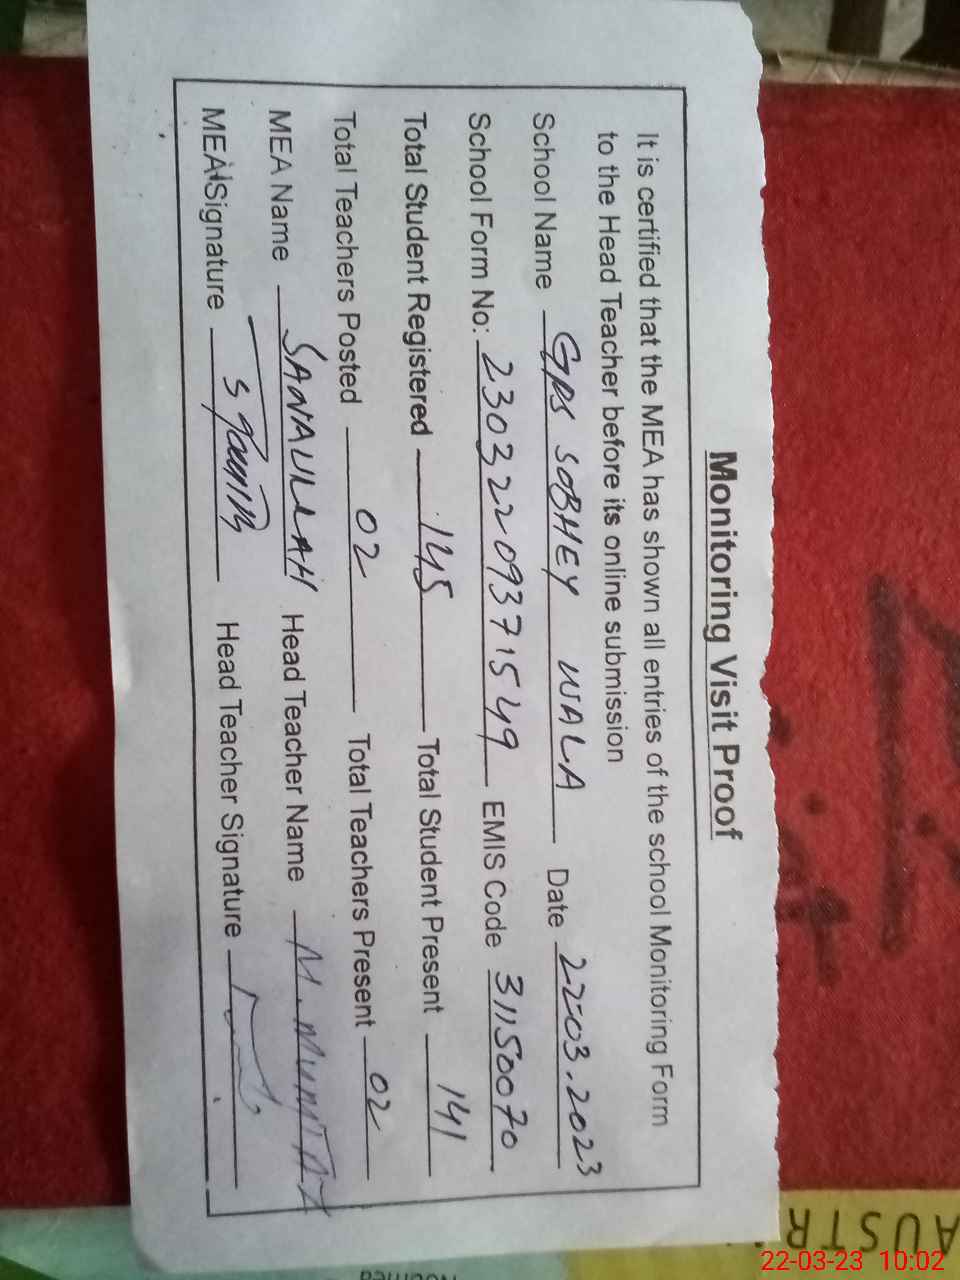 Monitoring Visit Proof
It is certified that the MEA has shown all entries of the school Monitoring Form
to the Head Teacher before its online submission
School Name GPS SOBHEY WALA Date 22-03.2023
School Form No: 23032209371549 EMIS Code 31150070
Total Student Registered 145 Total Student Present 141
Total Teachers Posted 02 Total Teachers Present 02
MEA Name SANAULLAH Head Teacher Name M. MUMTAZ
MEA Signature Head Teacher Signature
AUSTR
22-03-23 10:02